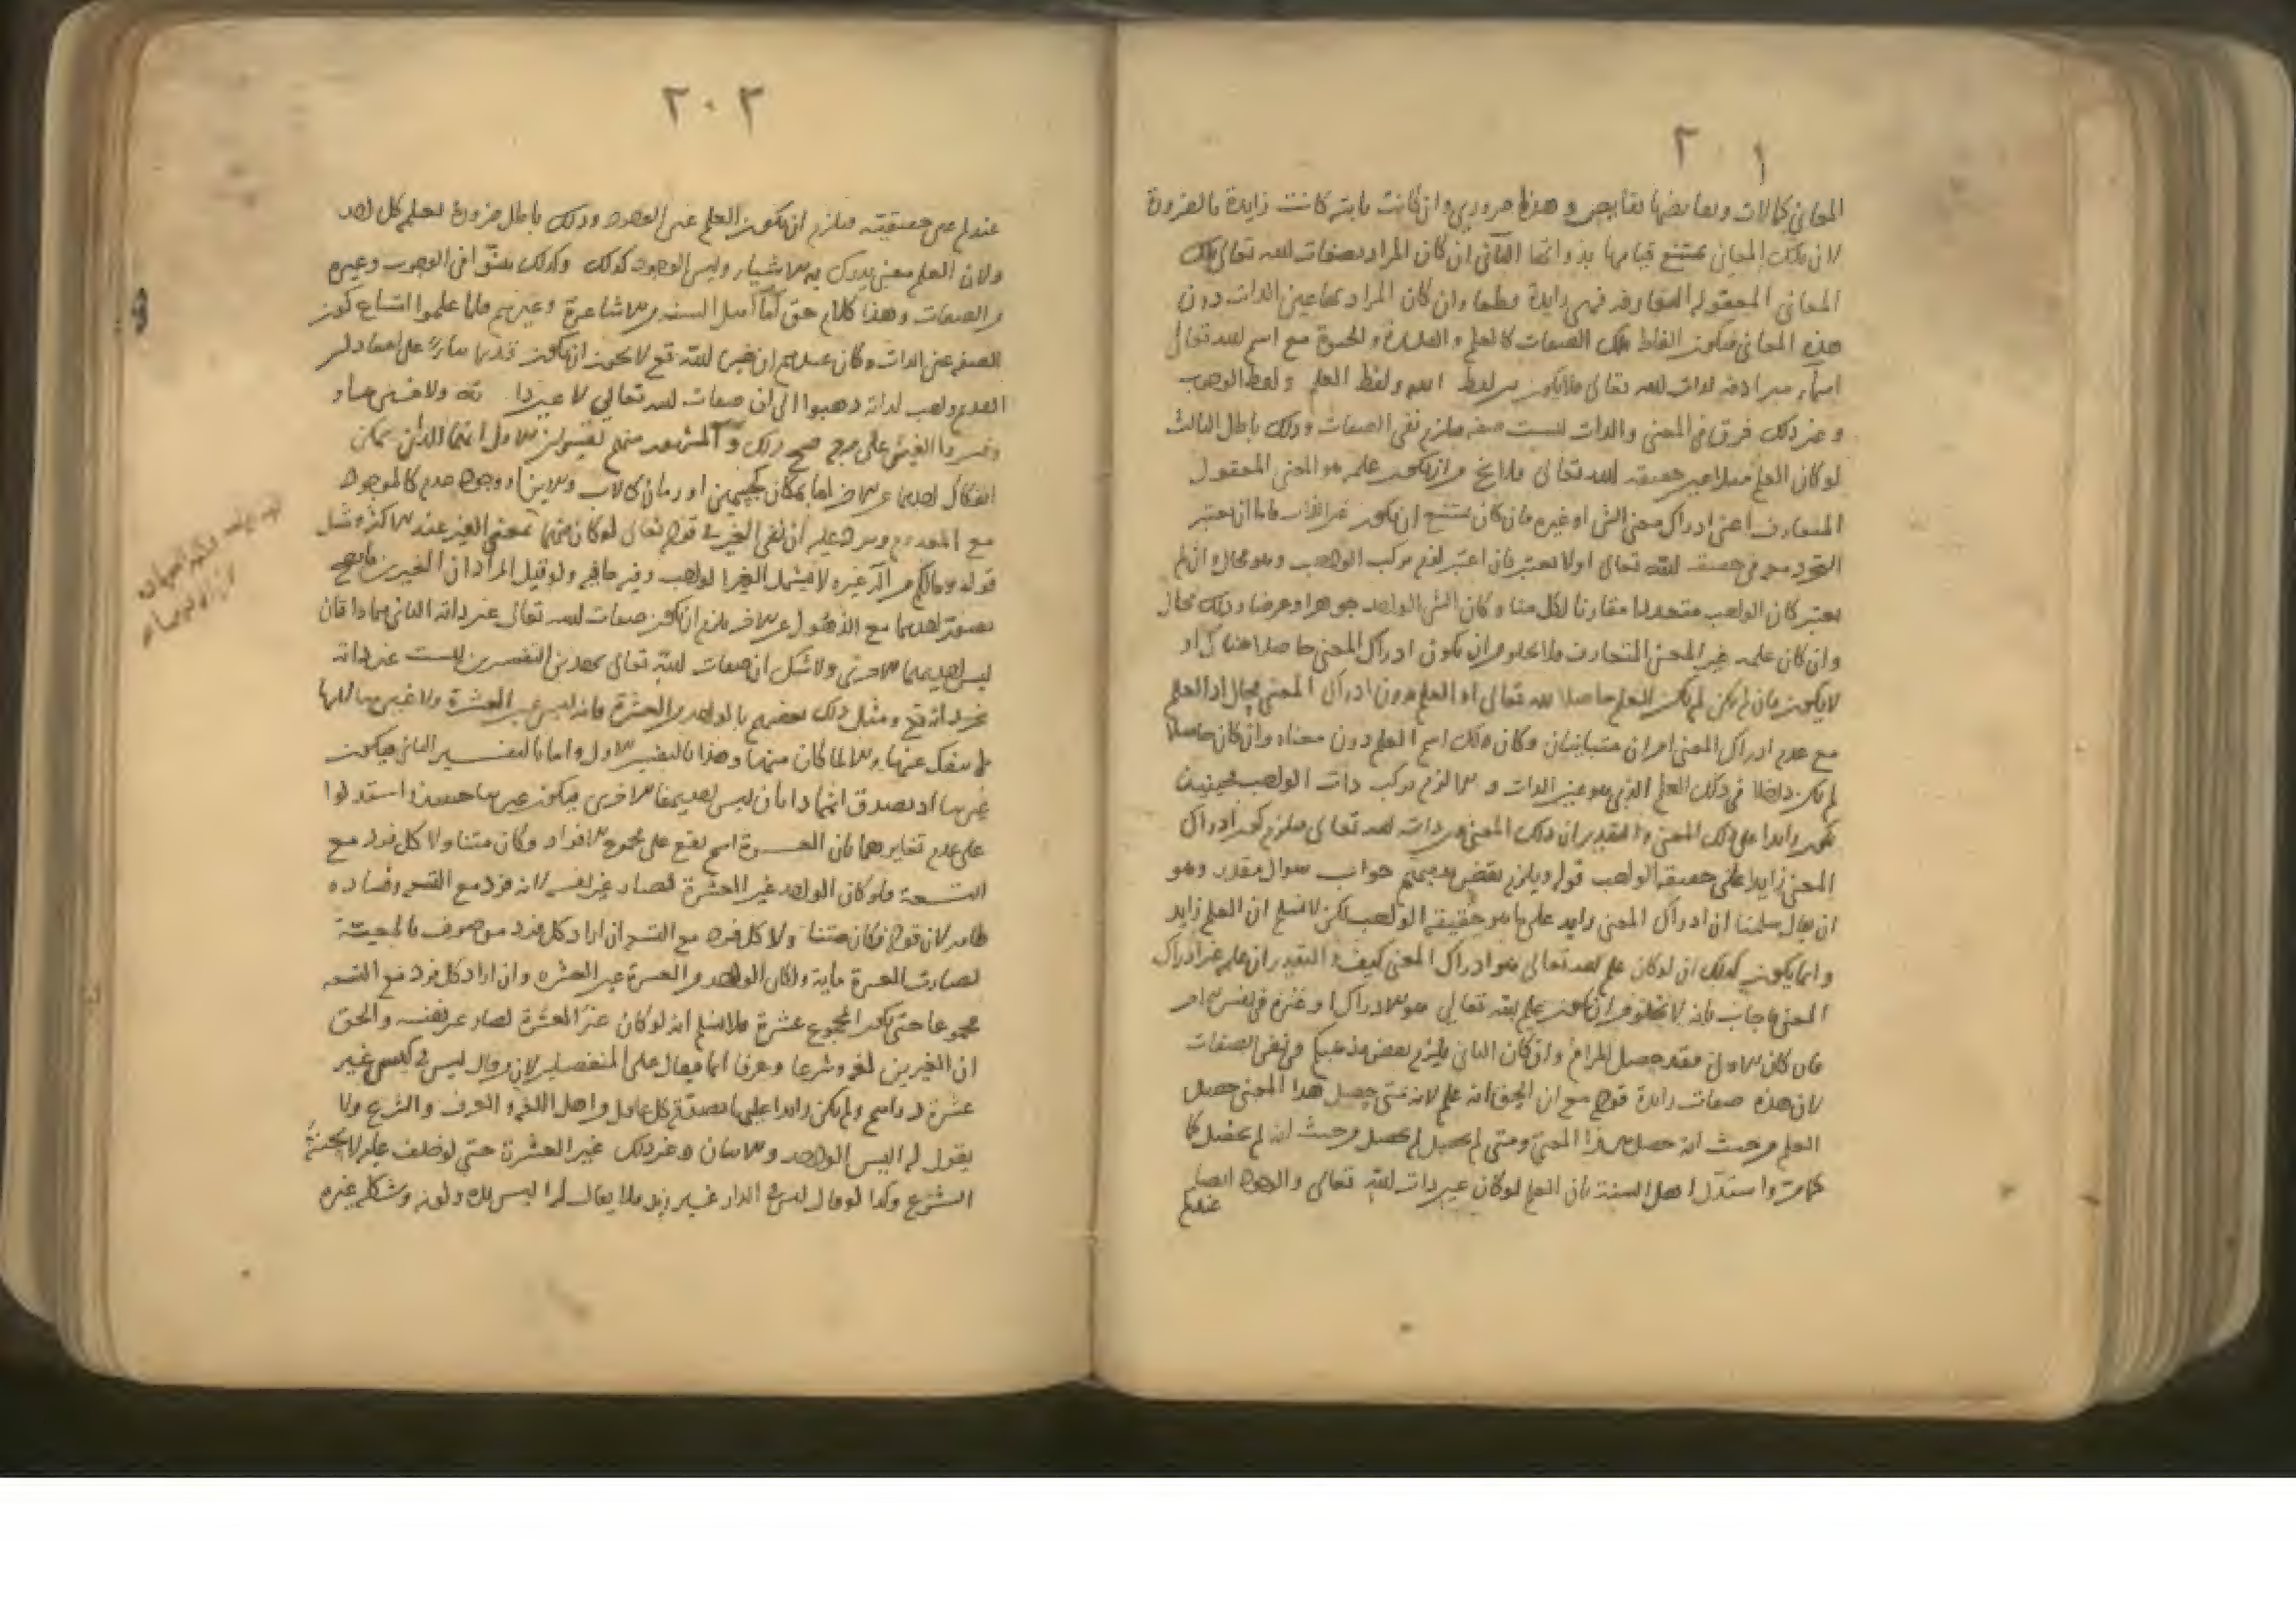 ٢٠١
المعاني كمالات ونقايضها نقايص وهذا ضروري وان كانت ثابتة كانت زايدة بالضرورة
لان تلك المعاني يمتنع قيامها بذواتها الثاني ان كان المراد بصفات الله تعالى تلك
المعاني المعقولة المتعارفة فهي زايدة قطعا وان كان المراد بها عين الذات دون
هذه المعاني فيكون الفاظ تلك الصفات كالعلم والقدرة والحيوة مع اسم الله تعالى
اسماء مترادفة لذات الله تعالى فلا يكون بين لفظ الله ولفظ العلم ولفظ الوجوب
وغير ذلك فرق في المعنى والذات ليست صفة فيلزم نفي الصفات وذلك باطل الثالث
لو كان العلم مثلا عين حقيقة الله تعالى فلا يخ من ان يكون علمه هو المعنى المعقول
المتعارف اعني ادراك معنى الشي او غيره فان كان يمتنع ان يكون غير الذات فاما ان يعتبر
في حقيقة الله تعالى او لا يعتبر فان اعتبر لزم تركب الواجب وهو محال وان لم
يعتبر كان الواجب متحدا مقارنا لكل منا وكان الشي الواحد جوهرا وعرضا وذلك محال
وان كان علمه غير المعنى المتعارف فلا يخلو من ان يكون ادراك المعنى حاصلا هناك او
لا يكون فان لم يكن لم يكن العلم حاصلا لله تعالى اذ العلم بدون ادراك المعنى محال اذ العلم
مع عدم ادراك المعنى امران متباينان وكان ذلك اسم العلم دون معناه وان كان حاصلا
لم يكن داخلا في ذلك العلم الذي هو عين الذات والا لزم تركب ذات الواجب فحينئذ
يكون زايدا على ذلك المعنى والتقدير ان ذلك المعنى عين ذات الله تعالى فيلزم كون ادراك
المعنى زايدا على حقيقة الواجب قوله ويلزم نقض مذهبكم جواب سوال مقدر وهو
ان يقال سلمنا ان ادراك المعنى زايد على ما هو حقيقة الواجب لكن لا نسلم ان العلم زايد
وانما يكون كذلك ان لو كان علم الله تعالى هو ادراك المعنى كيف والتقدير ان علمه غير ادراك
المعنى فاجاب بانه لا يخلو من ان يكون علم الله تعالى هو الادراك او غيره في نفس الامر
فان كان الاول فقد حصل المرام وان كان الثاني فيلزم بعض مذهبكم وفي نفي الصفات
لان هذه صفات زايدة قوله مع ان الحق انه علم لانه متى حصل هذا المعنى حصل
العلم من حيث انه حصل هذا المعنى ومتى لم يحصل لم يحصل من حيث انه لم يحصل كما
مر واستدل اهل السنة بان العلم لو كان عين ذات الله تعالى والوجود ايضا
عندكم
٢٠٢
عندكم عين حقيقته فيلزم ان يكون العلم عين الوجود وذلك باطل ضرورة لعلم كل احد
ولان العلم معنى يدرك به الاشياء وليس الوجود كذلك وكذلك في الوجوب وغيره
من الصفات وهذا كلام حق اما اهل السنة من الاشاعرة وغيرهم فلما علموا امتناع كون
الصفة عين الذات وكان عندهم ان غير الله تع لا يجوز ان يكون قديما بناء على اعتقادهم
القديم واجب لذاته ذهبوا الى ان صفات الله تعالى لا عين ذاته ولا غير ذاته
وفسروا الغير على وجه يصح ذلك والمشهور منهم تفسيران الاول انهما اللذان يمكن
انفكاك احدهما عن الاخر اما بمكان كجسمين او زمان كالاب والابن او وجود وعدم كالموجود
مع المعدوم ويرد عليه ان نفي الغير في قوله تعالى لو كان معنى الغير عند الاكثر مثل
قوله ومالكم من اله غيره لا يشمل الغير الواجب وفيه ما فيه ولو قيل المراد ان الغيرين ما يصح
تصور احدهما مع الذهول عن الاخر فلزم ان يكون صفات الله تعالى غير ذاته الثاني هما ذاتان
ليس احديهما الاخرى ولا شك ان صفات الله تعالى بهذين التفسيرين ليست عين ذاته
ولا غير ذاته تع ومثل ذلك بعضهم بالواحد من العشرة فانه ليس عين العشرة ولا غيرها لانها
لا ينفك عنها والا لما كان منها وهذا بالتفسير الاول واما بالتفسير الثاني فيكون
غيرها اذ يصدق انهما ذاتان ليس احديهما الاخرى فيكون غيرها حينئذ واستدلوا
على عدم تغايرهما بان العشرة اسم يقع على مجموع الافراد وكان متناولا كل فرد مع
التسعة فلو كان الواحد غير العشرة لصار غير نفسه لانه فرد مع التسع وفساده
ظاهر لان قوله وكان متناولا كل فرد مع التسع ان اراد كل فرد موصوف بالمعية
لصارت العشرة ماية ولكان الواحد من العشرة عين العشرة وان اراد كل فرد مع التسعة
مجموعا حتى يكون المجموع عشرة فلا نسلم انه لو كان غير العشرة لصار غير نفسه والحق
ان الغيرين لغة وشرعا وعرفا انما يقال على المنفصلين لان من قال ليس في كيسي غير
عشرة دراهم ولم يكن زايدا عليها يصدقه كل عاقل واهل اللغة والعرف والشرع ولا
يقول له اليس الواحد والاثنان وغير ذلك غير العشرة حتى لو حلف عليه لا يحنثه
الشرع وكذا لو قال ليس في الدار غير زيد فلا يقال له اليس يده ولونه وشكله غيره